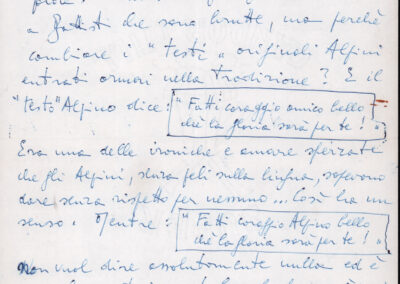 a Battisti che sono brutte, ma perchè
cambiare i "testi" originali Alpini
entrati ormai nella tradizione? E il
"testo" Alpino dice: "Fatti coraggio amico bello
chè la gloria sarà per te!"
Era una delle ironiche e amare sferzate
che gli Alpini, senza peli sulla lingua, sapevano
dare senza rispetto per nessuno... Così ha un
senso. Mentre: "Fatti coraggio Alpino bello
chè la gloria sarà per te!"
Non vuol dire assolutamente nulla ed è